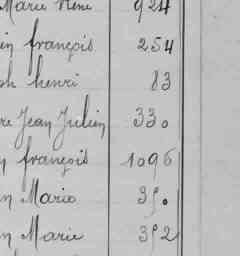 Marie René 924
in françois 254
ph henri 83
re Jean Julien 330
n françois 1096
n Marie 350
n Marie 352